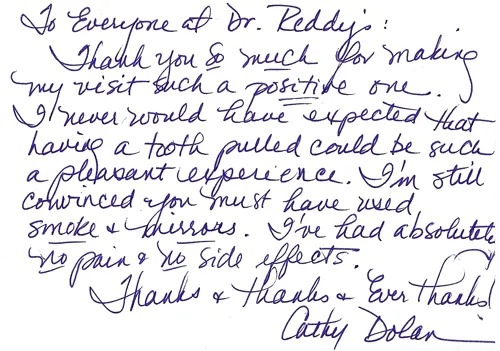 To Everyone at Dr. Reddy's:
Thank you so much for making
my visit such a positive one.
I never would have expected that
having a tooth pulled could be such
a pleasant experience. I'm still
convinced you must have used
smoke & mirrors. I've had absolutely
no pain & no side effects.
Thanks & thanks & Ever thanks!
Cathy Dolan